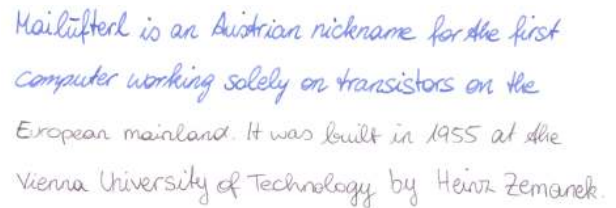 Mailüfterl is an Austrian nickname for the first
computer working solely on transistors on the
European mainland. It was built in 1955 at the
Vienna University of Technology by Heinz Zemanek.